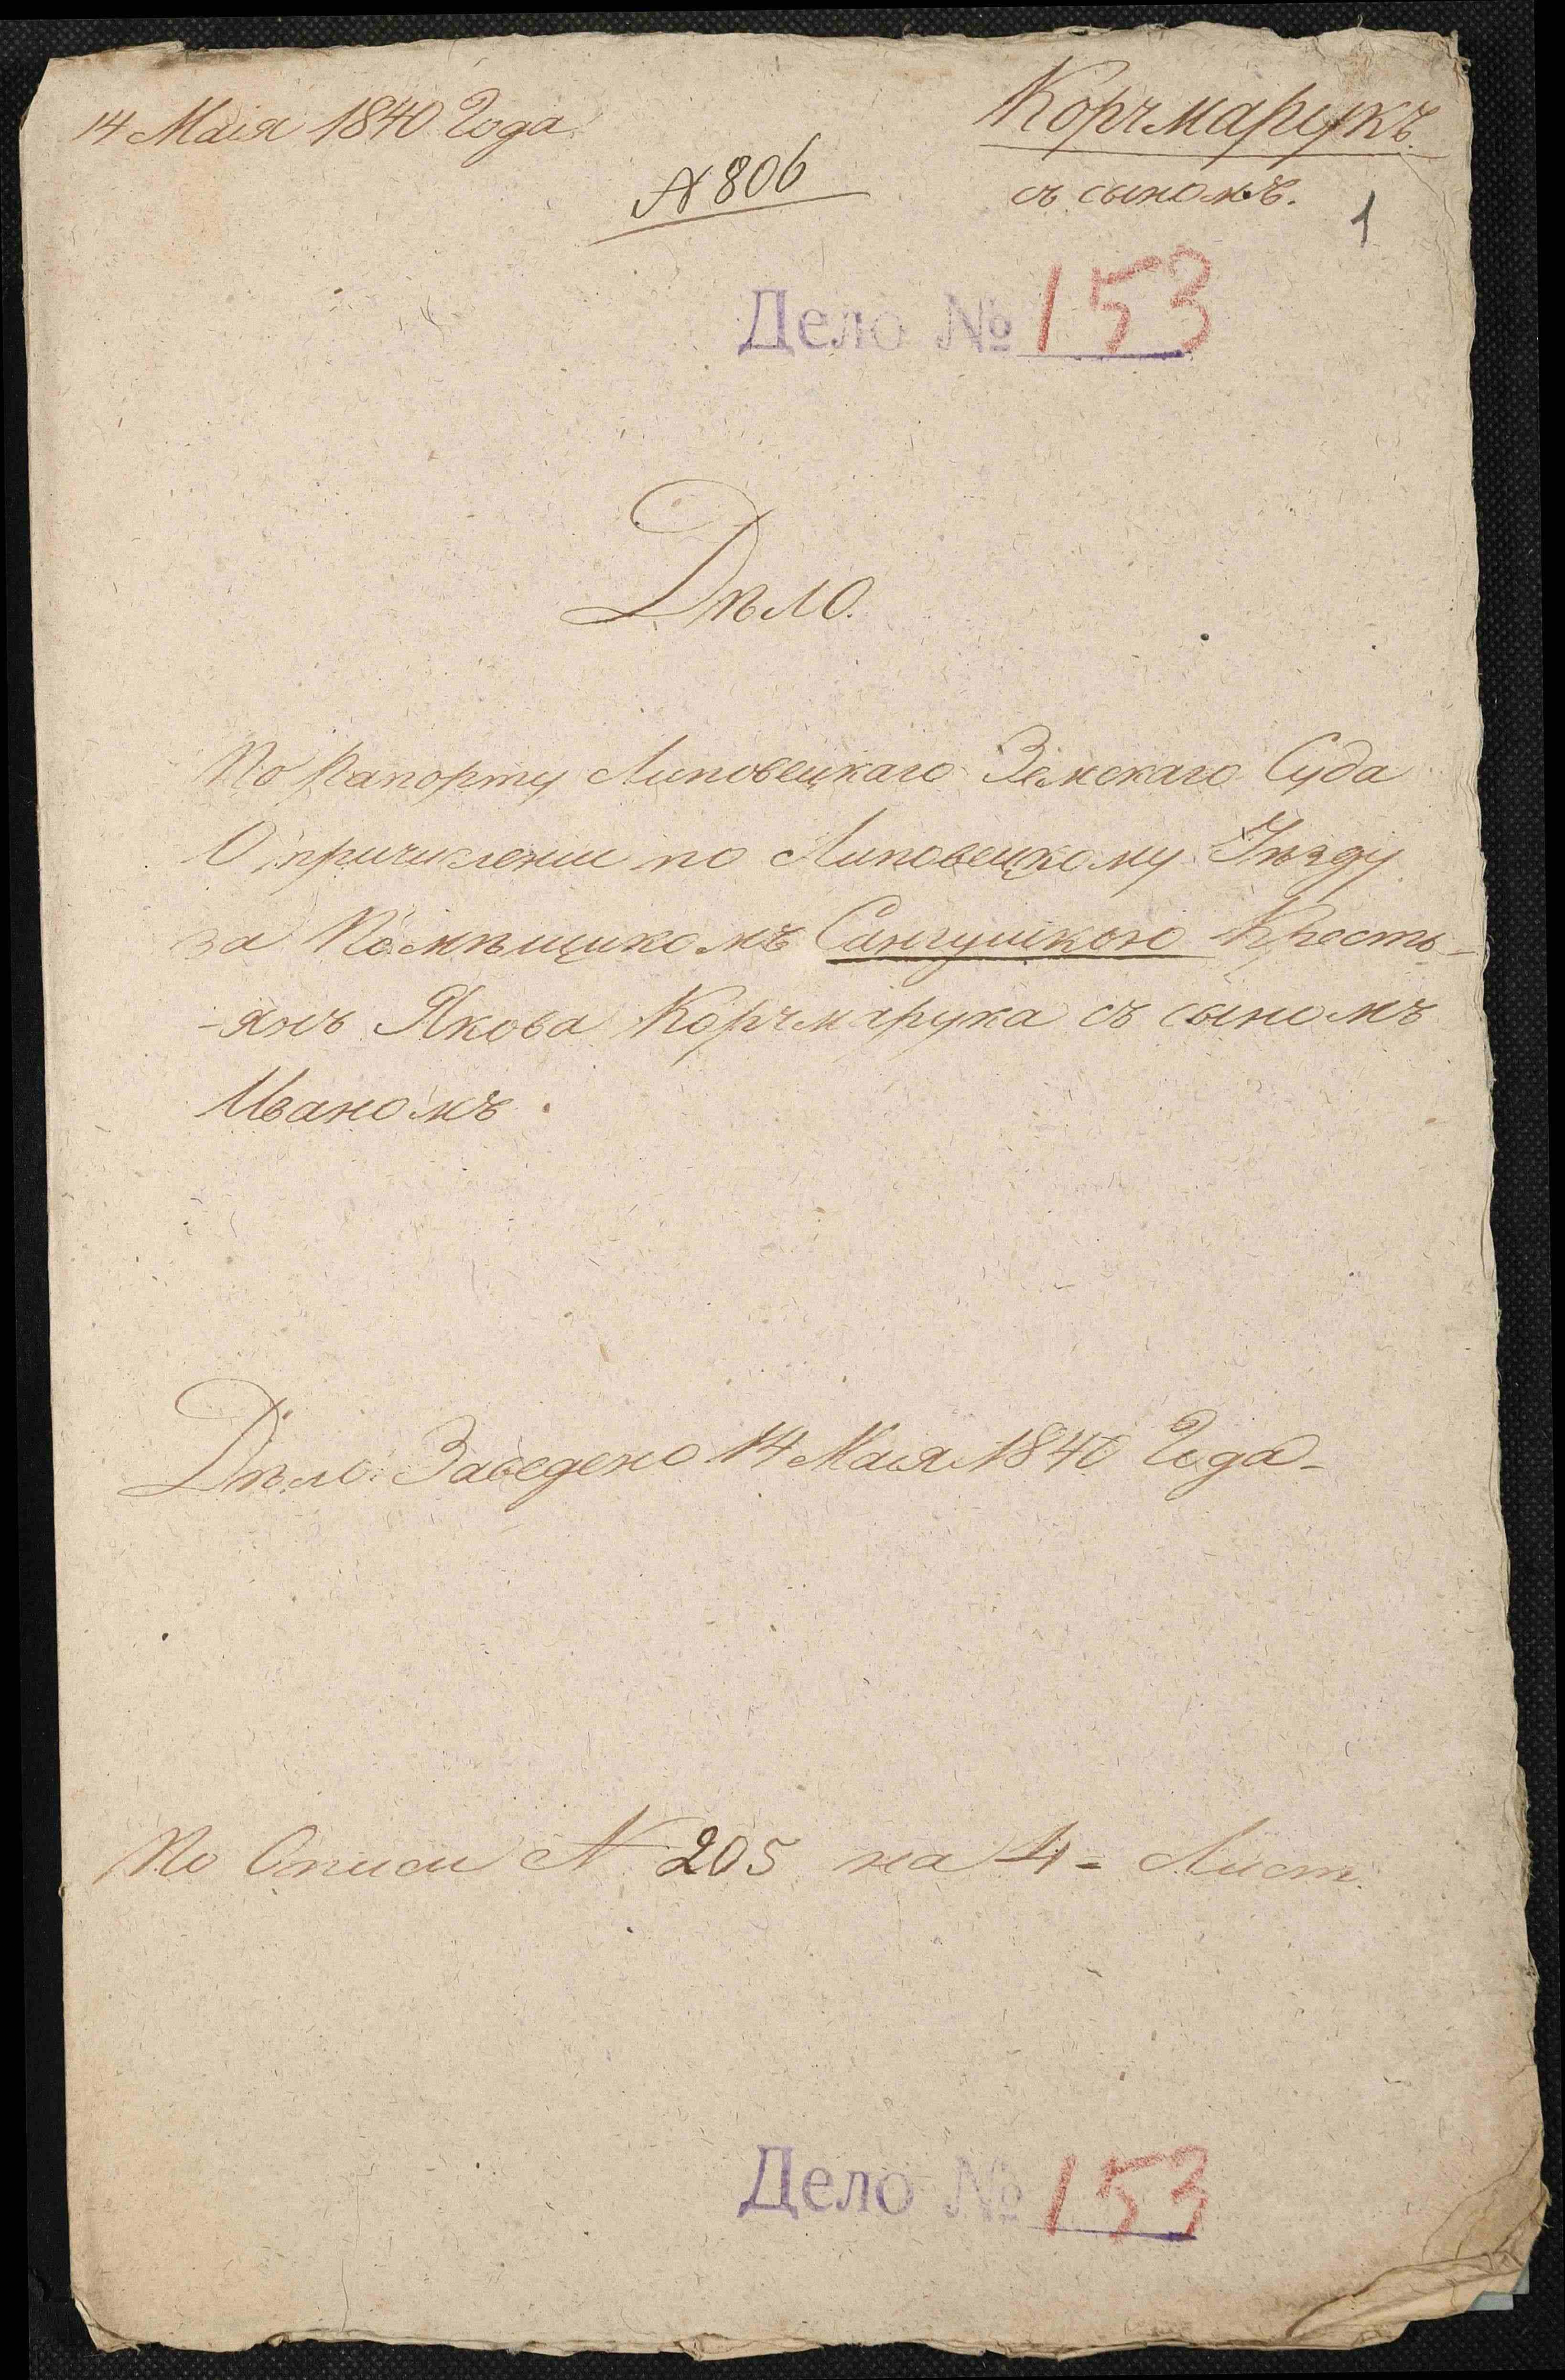 14 Маія 1840 Года
Корчмарукъ
съ сыномъ.
N 806
1
Дело № 153
Дѣло.
По рапорту Липовецкаго Земскаго Суда
О причисленіи по Липовецкому Уѣзду
за Помѣщикомъ Сангушкою Кресть-
-янъ Якова Корчмарука съ сыномъ
Иваномъ.
Дѣло Заведено 14 Маія 1840 Года
По Описи N 205 на 4 = Лист.
Дело № 153